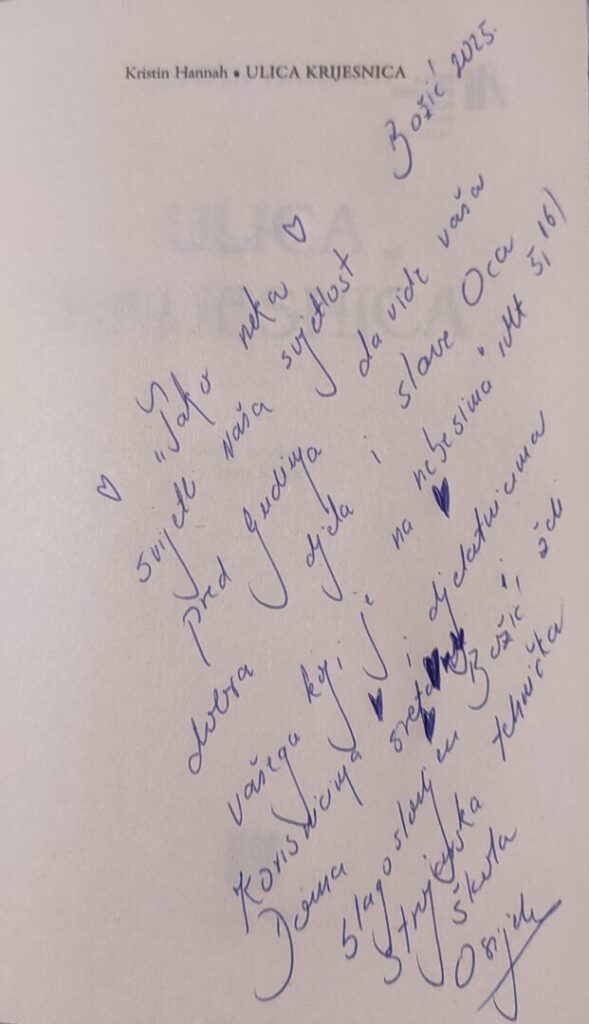 Kristin Hannah • ULICA KRIJESNICA
Božić 2025.
"Tako neka
svijetli vaša svjetlost
pred ljudima da vide vaša
dobra djela i slave Oca
vašega koji je na nebesima" (Mt 5, 16)
Korisnicima i djelatnicima
Doma sretan i
blagoslovljen Božić, želi
Strojarska tehnička
škola
Osijek